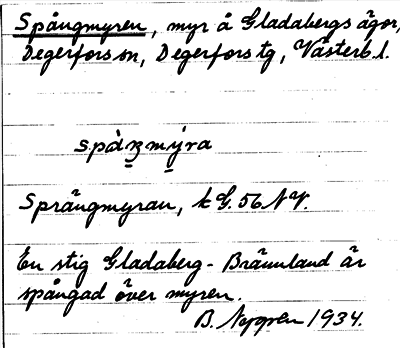 Spångmyren, myr å Gladabergs ägor,
Degerfors sn, Degerfors tg, Västerb. l.
spàŋmýra
Sprängmyran, k G. 56 NV.
En stig Gladaberg - Brännland är
spångad över myren.
B. Nygren 1934.